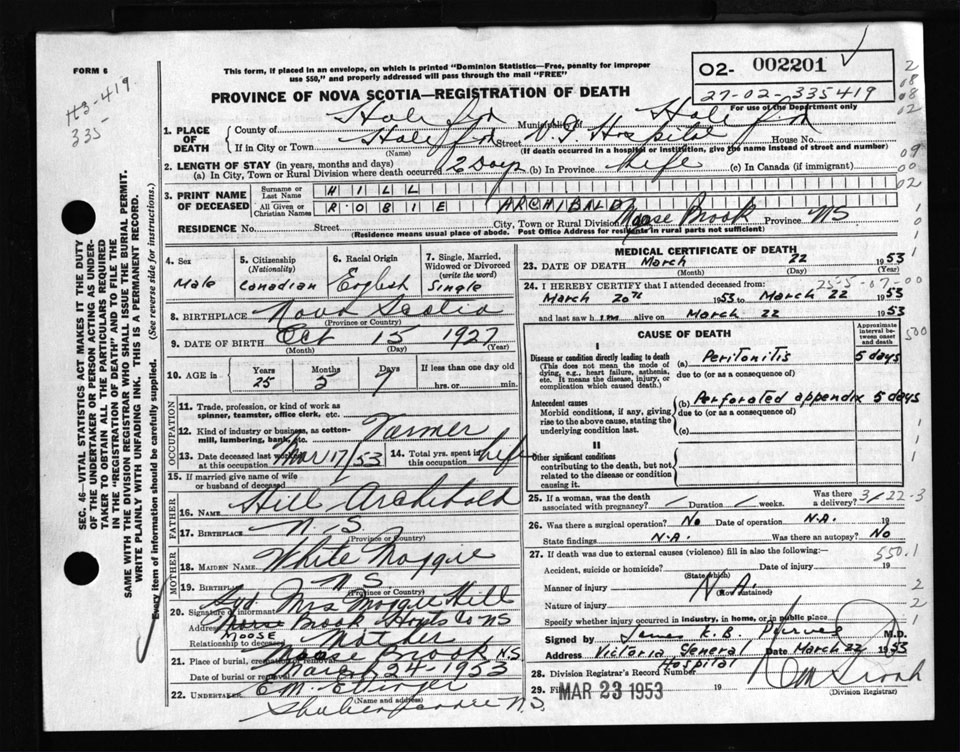 FORM 6
H3-419
335-
This form, if placed in an envelope, on which is printed "Dominion Statistics—Free, penalty for improper
use $50," and properly addressed will pass through the mail "FREE"
02- 002201
27-02-335419
For use of the Department only
PROVINCE OF NOVA SCOTIA—REGISTRATION OF DEATH
SEC. 46—VITAL STATISTICS ACT MAKES IT THE DUTY
OF THE UNDERTAKER OR PERSON ACTING AS UNDER-
TAKER TO OBTAIN ALL THE PARTICULARS REQUIRED
IN THE "REGISTRATION OF DEATH" AND TO FILE THE
SAME WITH THE DIVISION REGISTRAR WHO SHALL ISSUE THE BURIAL PERMIT.
WRITE PLAINLY WITH UNFADING INK. THIS IS A PERMANENT RECORD.
Every item of information should be carefully supplied. (See reverse side for instructions.)
1. PLACE OF DEATH
County of Halifax Municipality Halifax
If in City or Town Halifax Street V.G. Hospital House No.
(Name) (If death occurred in a hospital or institution, give the name instead of street and number)
2. LENGTH OF STAY (in years, months and days)
(a) In City, Town or Rural Division where death occurred 2 Days (b) In Province life (c) In Canada (if immigrant)
3. PRINT NAME OF DECEASED
Surname or Last Name HILL
All Given or Christian Names ROBIE ARCHIBALD
RESIDENCE No. Street City, Town or Rural Division Moose Brook Province NS
(Residence means usual place of abode. Post Office Address for residents in rural parts not sufficient)
4. Sex Male
5. Citizenship (Nationality) Canadian
6. Racial Origin English
7. Single, Married, Widowed or Divorced (write the word) Single
8. BIRTHPLACE Nova Scotia
(Province or Country)
9. DATE OF BIRTH Oct 15 1927
(Month) (Day) (Year)
10. AGE Years 25 Months 5 Days 7 If less than one day old
hrs. or min.
OCCUPATION
11. Trade, profession, or kind of work as
spinner, teamster, office clerk, etc.
12. Kind of industry or business, as cotton-
mill, lumbering, bank, etc. Farmer
13. Date deceased last worked at this occupation Mar 17/53 14. Total yrs. spent in this occupation life
15. If married give name of wife
or husband of deceased
FATHER
16. NAME Hill Archibald
17. BIRTHPLACE N.S.
(Province or Country)
MOTHER
18. MAIDEN NAME White Maggie
19. BIRTHPLACE NS
(Province or Country)
20. Signature of informant Sgd Mrs Maggie Hill
Address Moose Brook Hants Co NS
MOOSE
Relationship to deceased Mother
21. Place of burial, cremation or removal Moose Brook N.S.
Date of burial or removal March 24-1953
22. UNDERTAKER E.M. Ettinger
(Name and address)
Shubenacadie N.S.
MEDICAL CERTIFICATE OF DEATH
23. DATE OF DEATH March 22 1953
(Month) (Day) (Year)
25-5-07-00
24. I HEREBY CERTIFY that I attended deceased from:
March 20th 1953 to March 22 1953
and last saw him alive on March 22 1953
CAUSE OF DEATH
Approximate interval between onset and death
I
Disease or condition directly leading to death
(This does not mean the mode of dying, e.g.: heart failure, asthenia, etc. It means the disease, injury, or complication which caused death.)
(a) Peritonitis 5 days
due to (or as a consequence of)
Antecedent causes
Morbid conditions, if any, giving rise to the above cause, stating the underlying condition last.
(b) Perforated appendix 5 days
due to (or as a consequence of)
(c)
II
Other significant conditions
contributing to the death, but not related to the disease or condition causing it.
25. If a woman, was the death associated with pregnancy? Duration weeks. Was there a delivery? 3/22-3
26. Was there a surgical operation? No Date of operation N.A. 19
State findings N.A. Was there an autopsy? No
27. If death was due to external causes (violence) fill in also the following:
550.1
Accident, suicide or homicide? Date of injury 19
(State which)
Manner of injury N.A.
Nature of injury
Specify whether injury occurred in industry, in home, or in public place
Signed by James E.B. Purves M.D.
Address Victoria General Hospital Date March 22 1953
28. Division Registrar's Record Number
29. Filed MAR 23 1953
(Division Registrar)